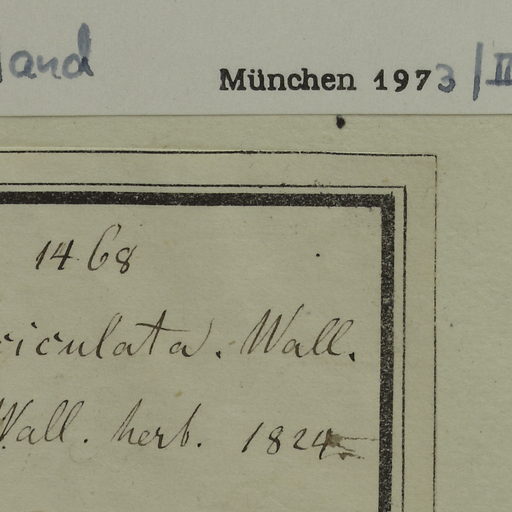 land
München 1973/II
1468
riculata. Wall.
Wall. herb. 1824